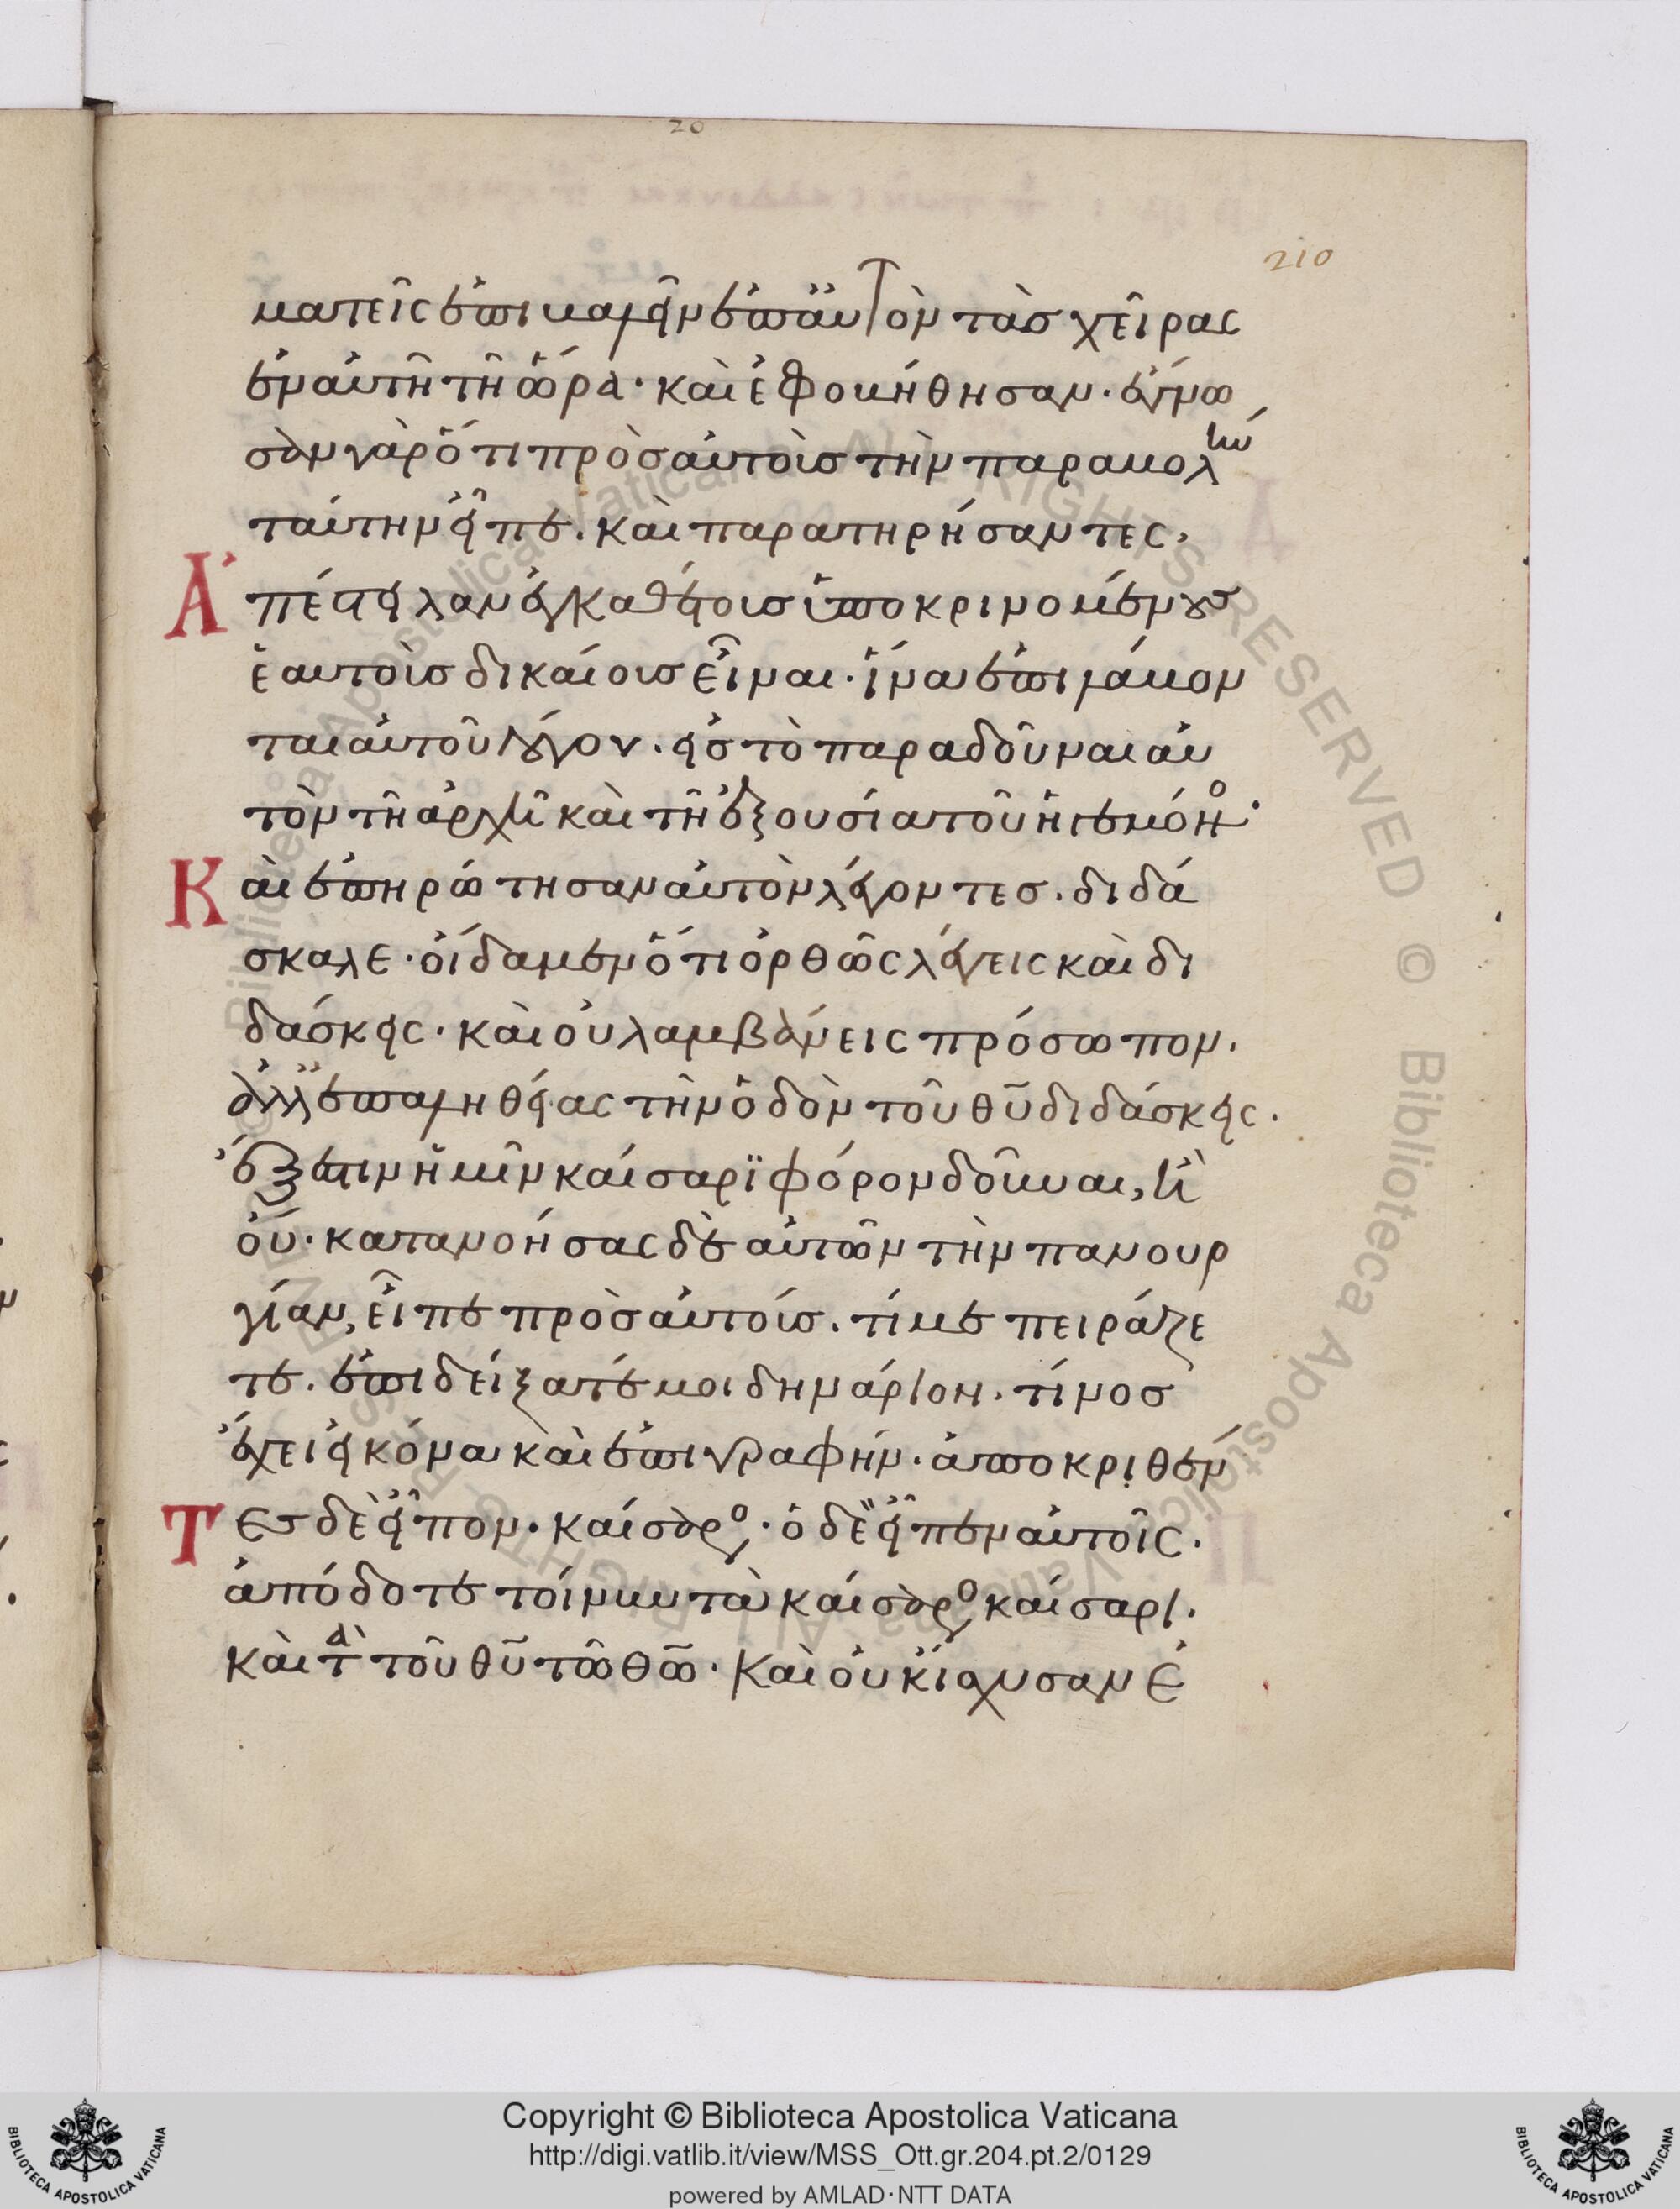 20
210
ματεῖς ἐπιβαλεῖν ἐπ' αὐτὸν τὰς χεῖρας
ἐν αὐτῆ τῆ ὥρα· καὶ ἐφοβήθησαν· ἔγνω
σαν γὰρ ὅτι πρὸς αὐτοὺς τὴν παραβολὴν
ταύτην εἶπε. καὶ παρατηρήσαντες.
Ἀπέστειλαν ἐγκαθέτους ὑποκρινομένους
ἑαυτοὺς δικαίους εἶναι· ἵνα ἐπιλάβων
ται αὐτοῦ λόγον· εἰς τὸ παραδοῦναι αὐ
τὸν τῆ ἀρχῆ καὶ τῆ ἐξουσία τοῦ ἡγεμόνος·
Καὶ ἐπηρώτησαν αὐτὸν λέγοντες. διδά
σκαλε· οἴδαμεν ὅτι ὀρθῶς λέγεις καὶ δι
δάσκεις· καὶ οὐ λαμβάνεις πρόσωπον.
ἀλλ' ἐπ' ἀληθείας τὴν ὁδὸν τοῦ θυ διδάσκεις.
ἔξεστιν ἡμῖν καίσαρϊ φόρον δοῦναι, ἢ
οὔ· κατανοήσας δὲ αὐτῶν τὴν πανουρ
γίαν, εἶπε πρὸς αὐτούς. τί με πειράζε
τε. ἐπιδείξατέ μοι δηνάριον. τίνος
ἔχει εἰκόνα καὶ ἐπιγραφήν. ἀποκριθέν
Τες δὲ εἶπον· καίσαρος· ὁ δὲ εἶπεν αὐτοῖς.
ἀπόδοτε τοίνυν τὰ καίσαρος καίσαρι.
καὶ τὰ τοῦ θυ τῶ θω· Καὶ οὐκ ἴσχυσαν ἐ
Copyright © Biblioteca Apostolica Vaticana
http://digi.vatlib.it/view/MSS_Ott.gr.204.pt.2/0129
powered by AMLAD·NTT DATA